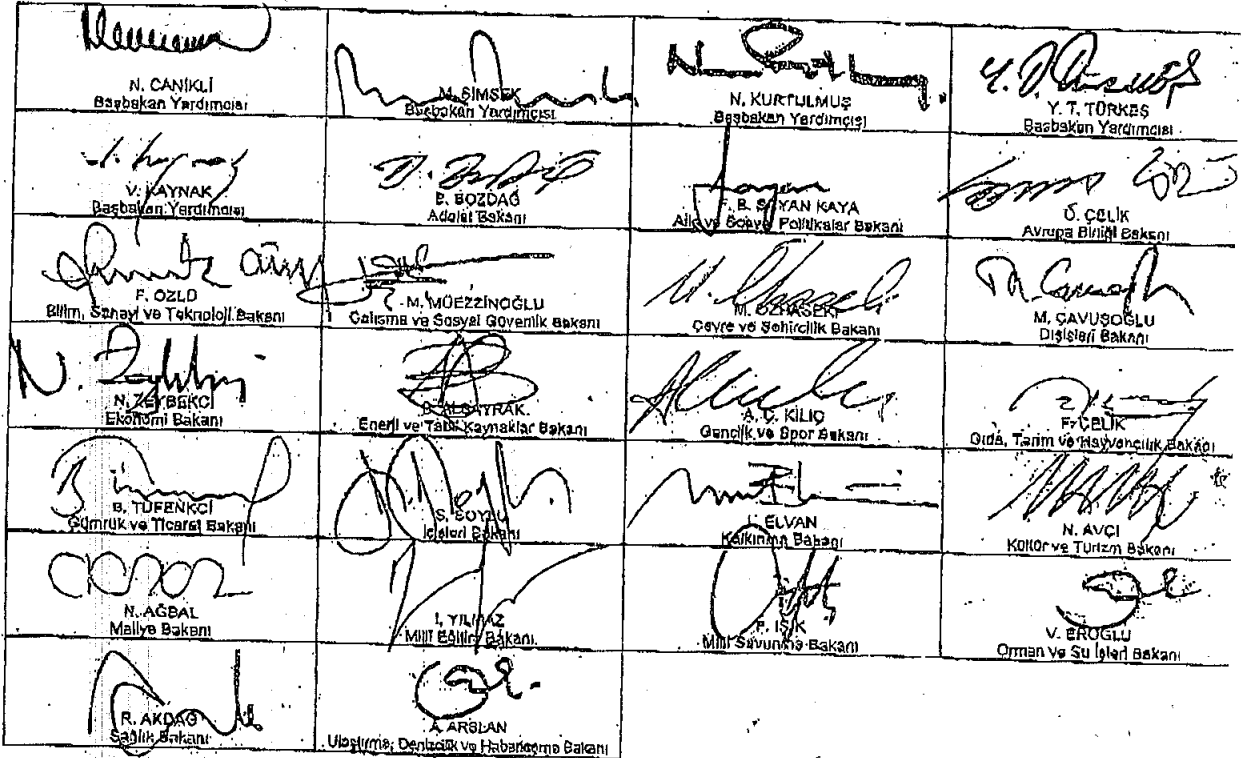 N. CANİKLİ
Başbakan Yardımcısı
M. ŞİMŞEK
Başbakan Yardımcısı
N. KURTULMUŞ
Başbakan Yardımcısı
Y. T. TÜRKEŞ
Başbakan Yardımcısı
V. KAYNAK
Başbakan Yardımcısı
B. BOZDAĞ
Adalet Bakanı
F. B. SAYAN KAYA
Aile ve Sosyal Politikalar Bakanı
Ö. ÇELİK
Avrupa Birliği Bakanı
F. ÖZLÜ
Bilim, Sanayi ve Teknoloji Bakanı
M. MÜEZZİNOĞLU
Çalışma ve Sosyal Güvenlik Bakanı
M. ÖZHASEKİ
Çevre ve Şehircilik Bakanı
M. ÇAVUŞOĞLU
Dışişleri Bakanı
N. ZEYBEKCİ
Ekonomi Bakanı
B. ALBAYRAK
Enerji ve Tabii Kaynaklar Bakanı
A. Ç. KILIÇ
Gençlik ve Spor Bakanı
F. ÇELİK
Gıda, Tarım ve Hayvancılık Bakanı
B. TÜFENKCİ
Gümrük ve Ticaret Bakanı
S. SOYLU
İçişleri Bakanı
L. ELVAN
Kalkınma Bakanı
N. AVCI
Kültür ve Turizm Bakanı
N. AĞBAL
Maliye Bakanı
İ. YILMAZ
Milli Eğitim Bakanı
F. IŞIK
Milli Savunma Bakanı
V. EROĞLU
Orman ve Su İşleri Bakanı
R. AKDAĞ
Sağlık Bakanı
A. ARSLAN
Ulaştırma, Denizcilik ve Haberleşme Bakanı